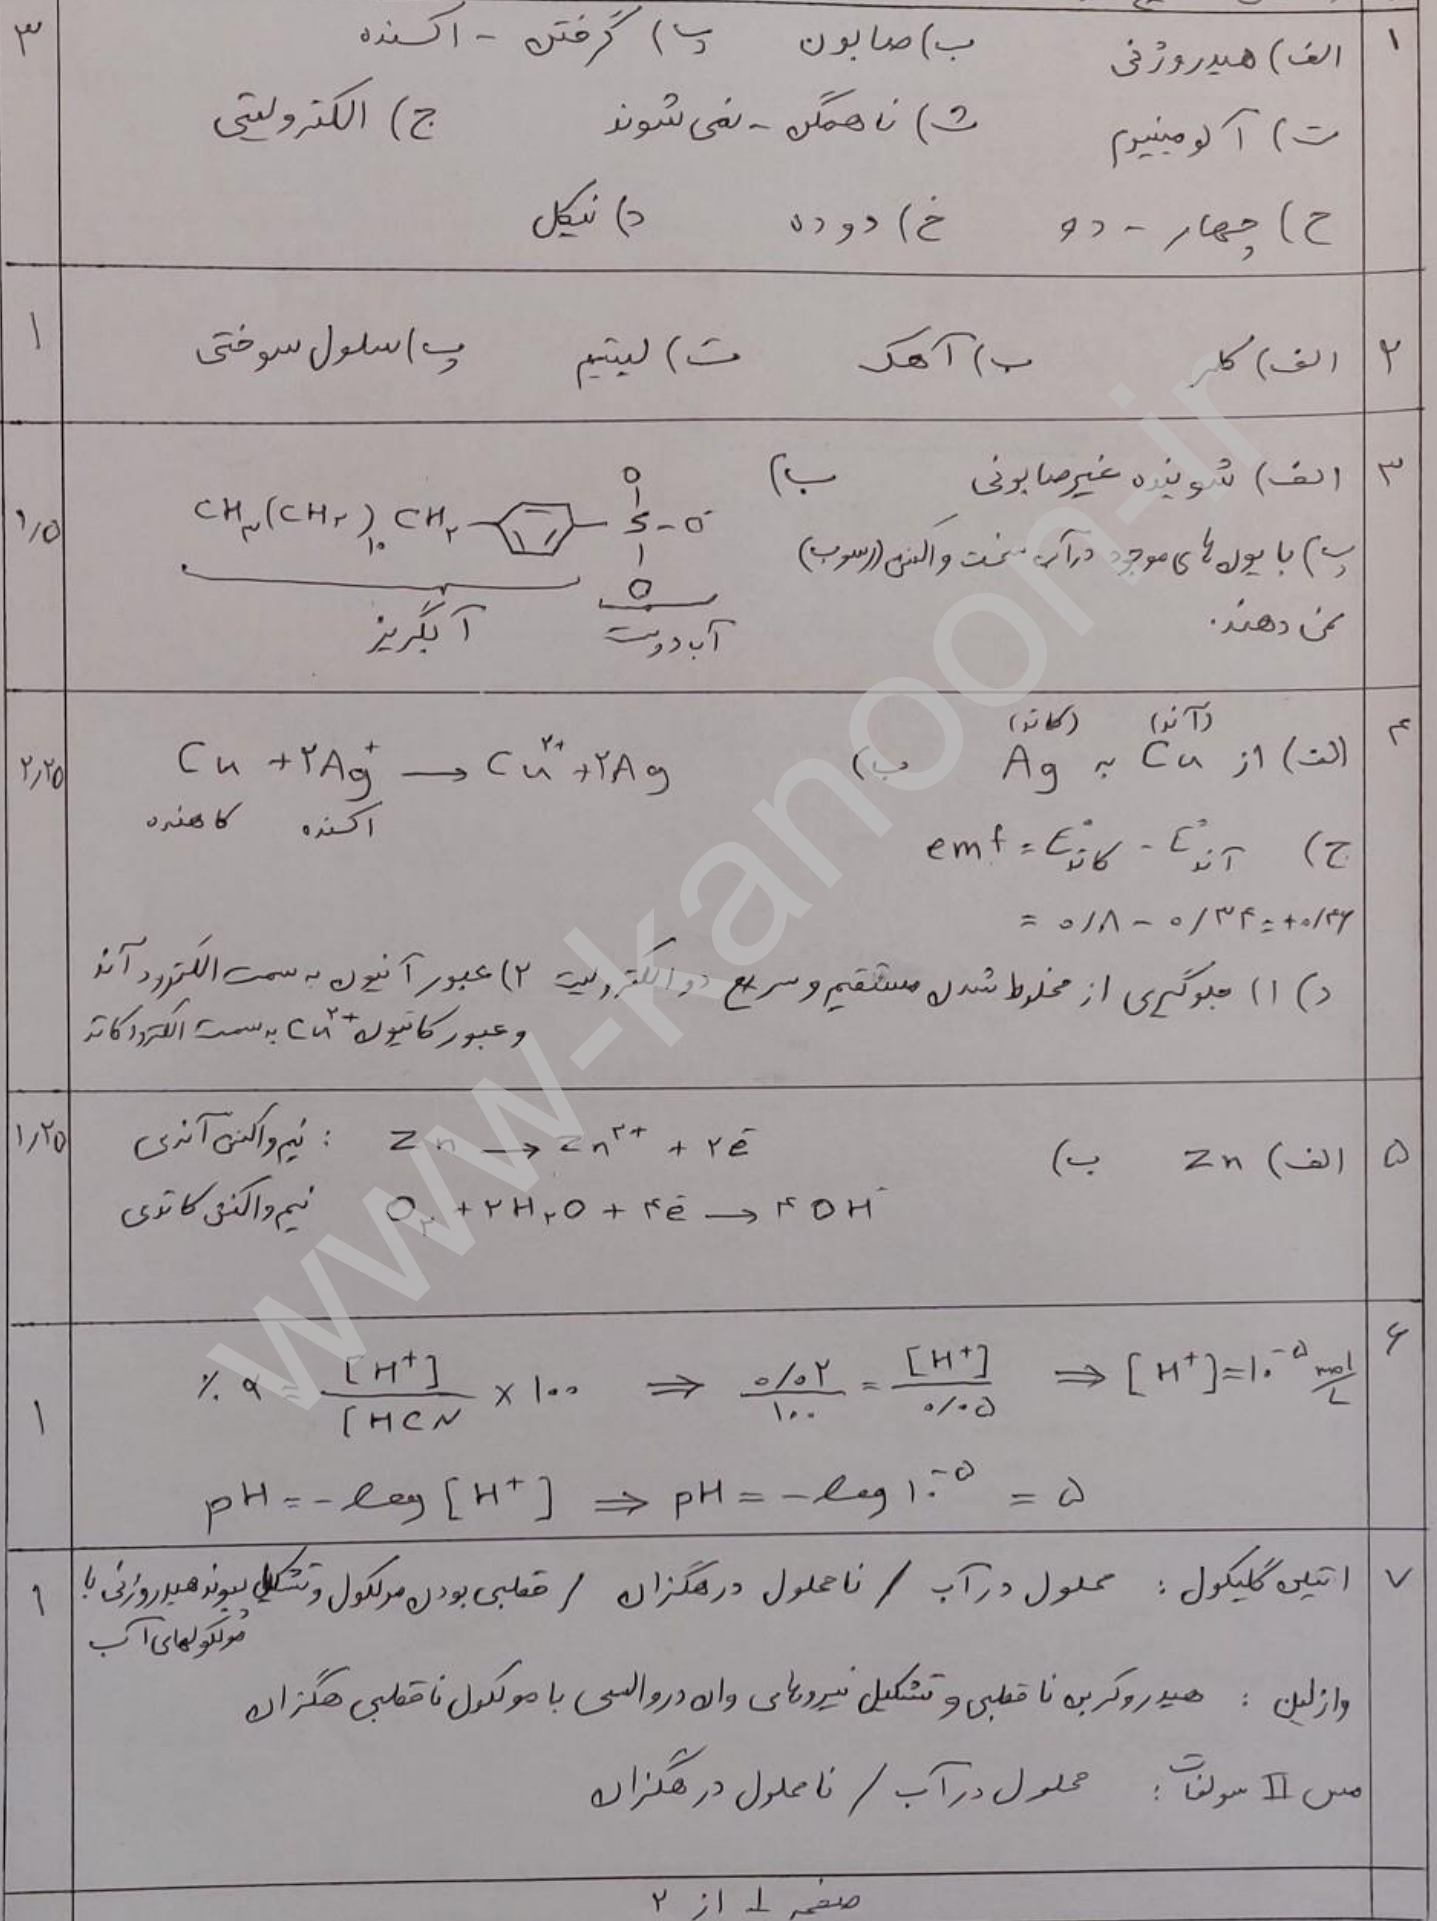 ۱ الف) هیدروژنی ب) صابون پ) گرفتن - اکسنده ۳
ت) آلومینیوم ث) ناهمگن - نمی شوند ج) الکترولیتی
ح) چهار - دو خ) دوده د) نیکل
۲ الف) کلر ب) آهک ت) لیتیم پ) سلول سوختی ۱
۳ الف) شوینده غیرصابونی ب) CH۳(CH۲)۱۰CH۲ S O O O⁻ ۱/۵
پ) با یون های موجود در آب سخت واکنش (رسوب)
نمی دهند.
آبگریز آب دوست
(آند) (کاتد)
۴ الف) از Cu به Ag ب) Cu + ۲Ag⁺ → Cu²⁺ + ۲Ag ۲/۲۵
کاهنده اکسنده
ج) emf = E°کاتد - E°آند
= ۰/۸ - ۰/۳۴ = +۰/۴۶
د) ۱) جلوگیری از مخلوط شدن مستقیم و سریع دو الکترولیت ۲) عبور آنیون به سمت الکترود آند
و عبور کاتیون Cu²⁺ به سمت الکترود کاتد
۵ الف) Zn ب) نیم واکنش آندی : Zn → Zn²⁺ + ۲e⁻ ۱/۲۵
نیم واکنش کاتدی O۲ + ۲H۲O + ۴e⁻ → ۴OH⁻
۶ % α = [H⁺] / [HCN × ۱۰۰ ⇒ ۰/۰۲ / ۱۰۰ = [H⁺] / ۰/۰۵ ⇒ [H⁺] = ۱۰⁻⁵ mol/L ۱
pH = -log [H⁺] ⇒ pH = -log ۱۰⁻⁵ = ۵
۷ اتیلن گلیکول : محلول در آب / نامحلول در هگزان / قطبی بودن مولکول و تشکیل پیوند هیدروژنی با ۱
مولکولهای آب
وازلین : هیدروکربن ناقطبی و تشکیل نیروهای وان دروالسی با مولکول ناقطبی هگزان
مس II سولفات : محلول در آب / نامحلول در هگزان
صفحه ۱ از ۲
www-kanoon-ir